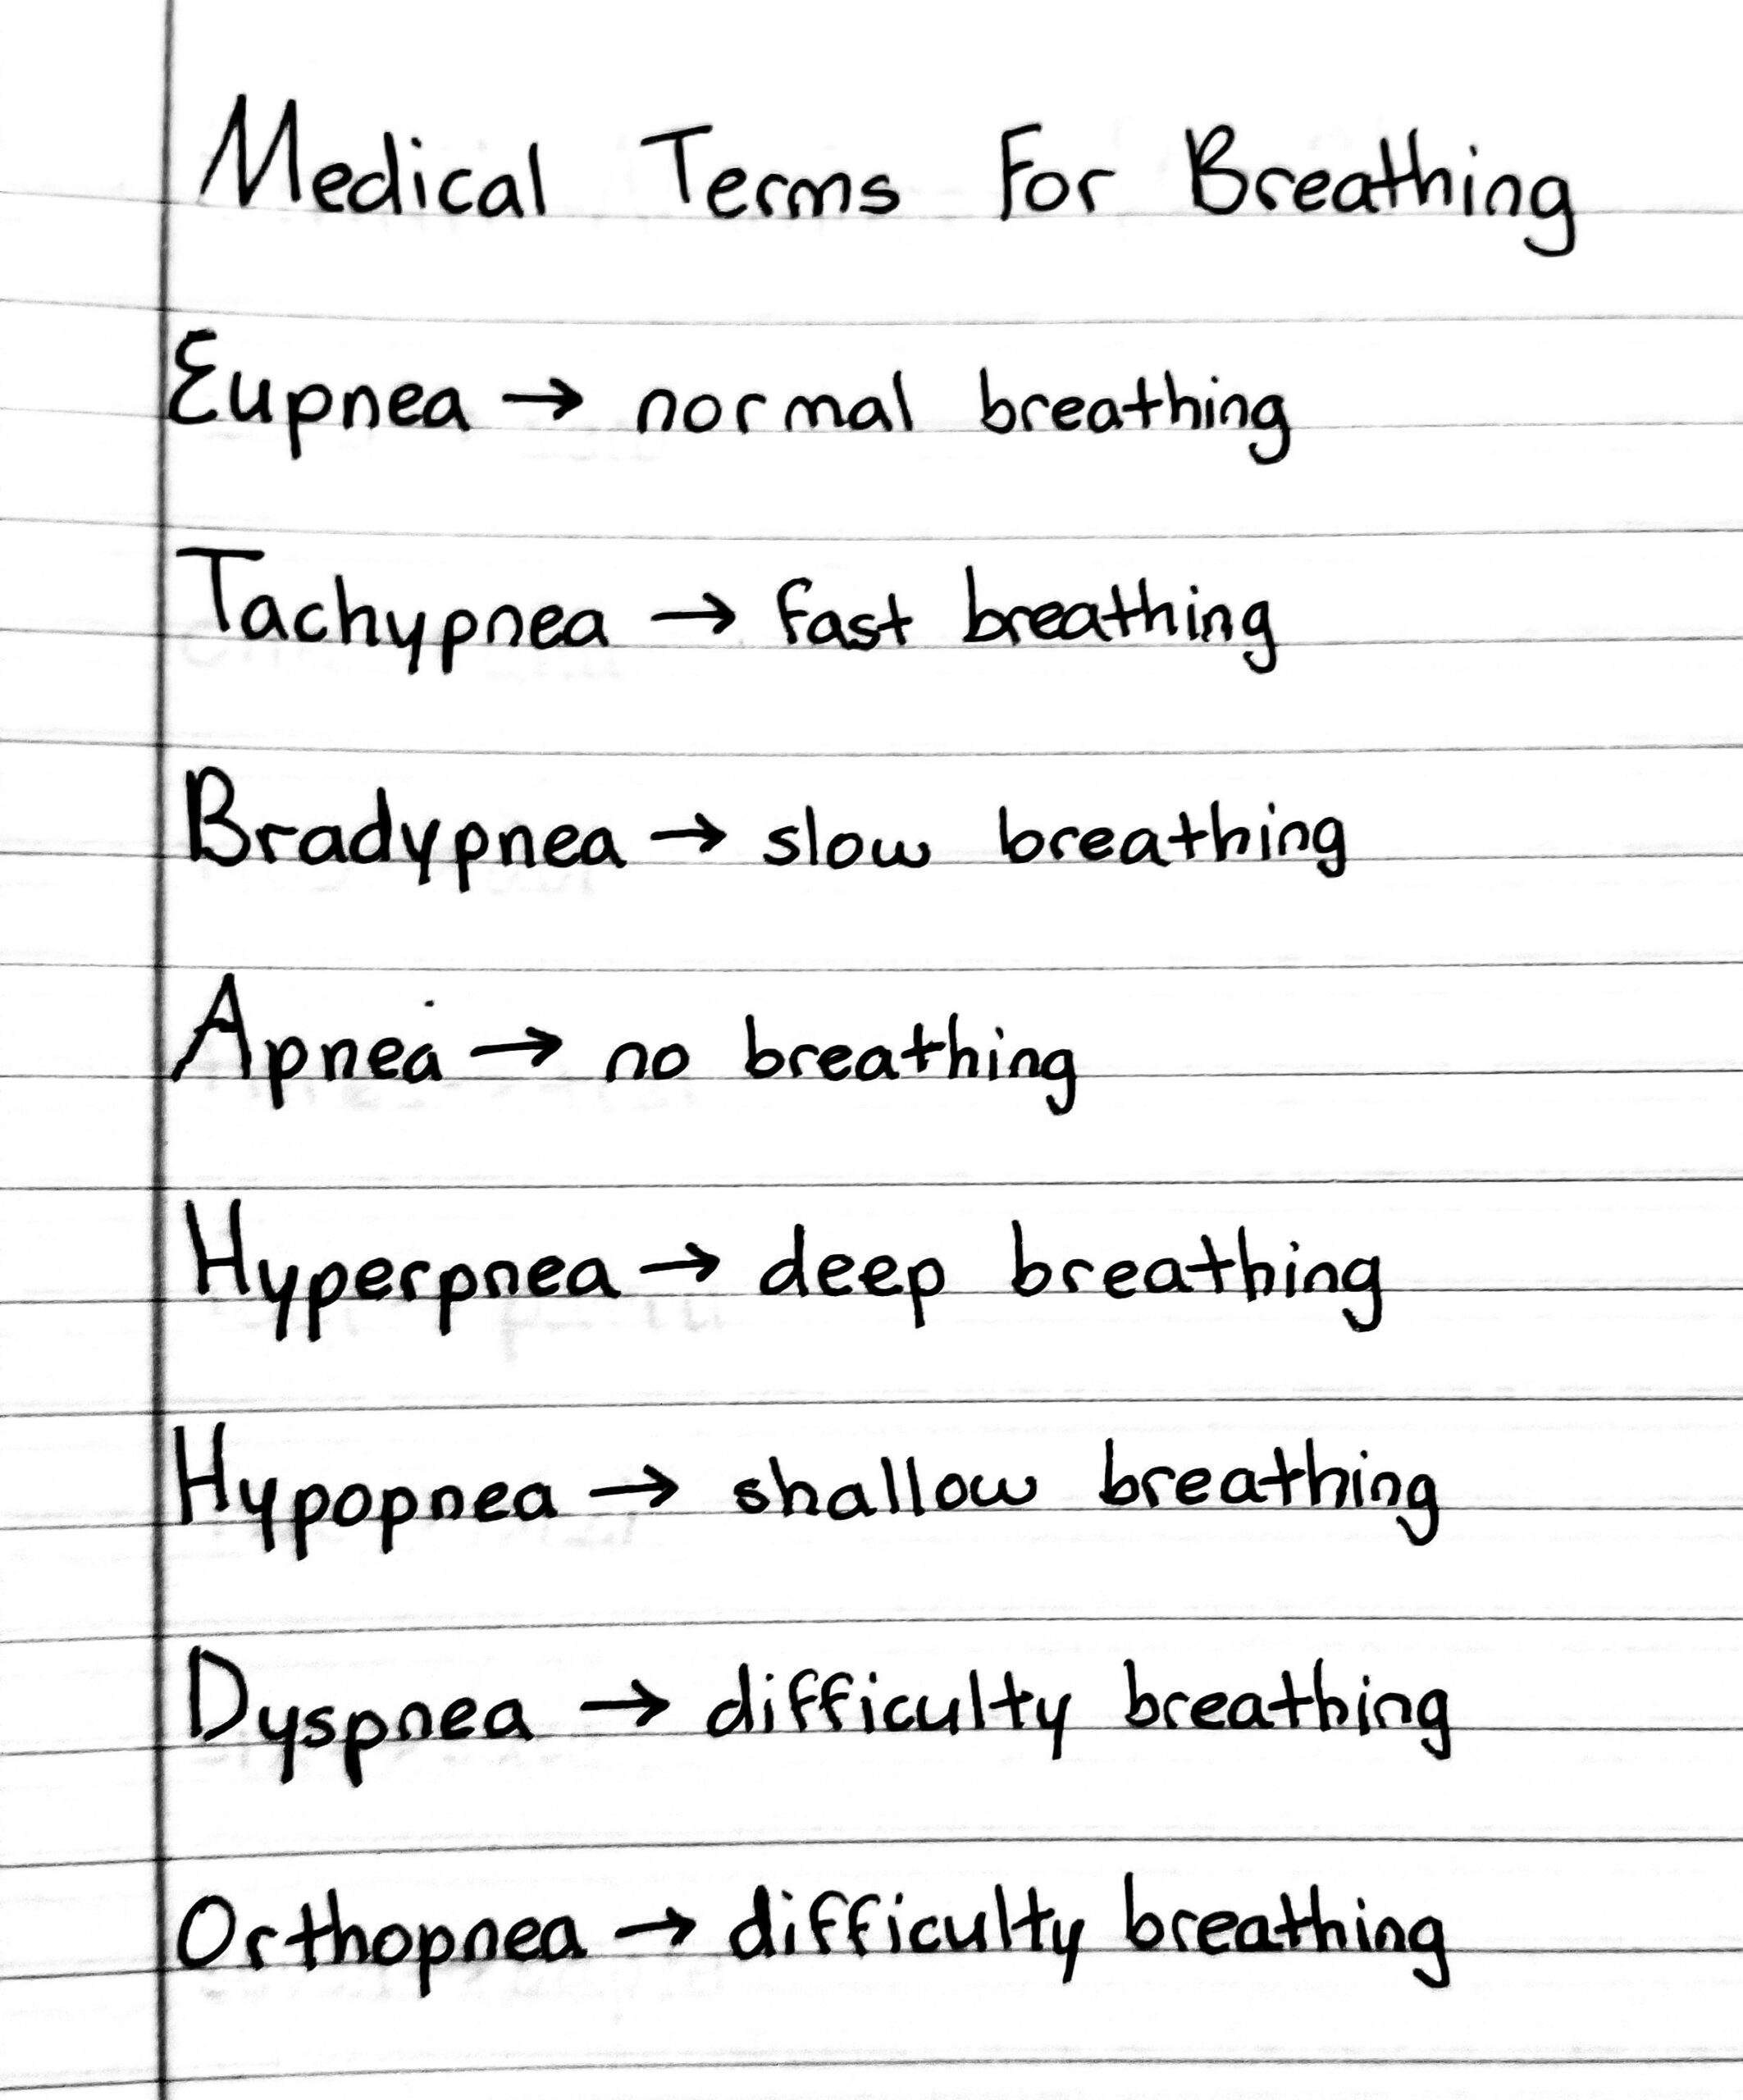 Medical Terms For Breathing
Eupnea → normal breathing
Tachypnea → fast breathing
Bradypnea → slow breathing
Apnea → no breathing
Hyperpnea → deep breathing
Hypopnea → shallow breathing
Dyspnea → difficulty breathing
Orthopnea → difficulty breathing